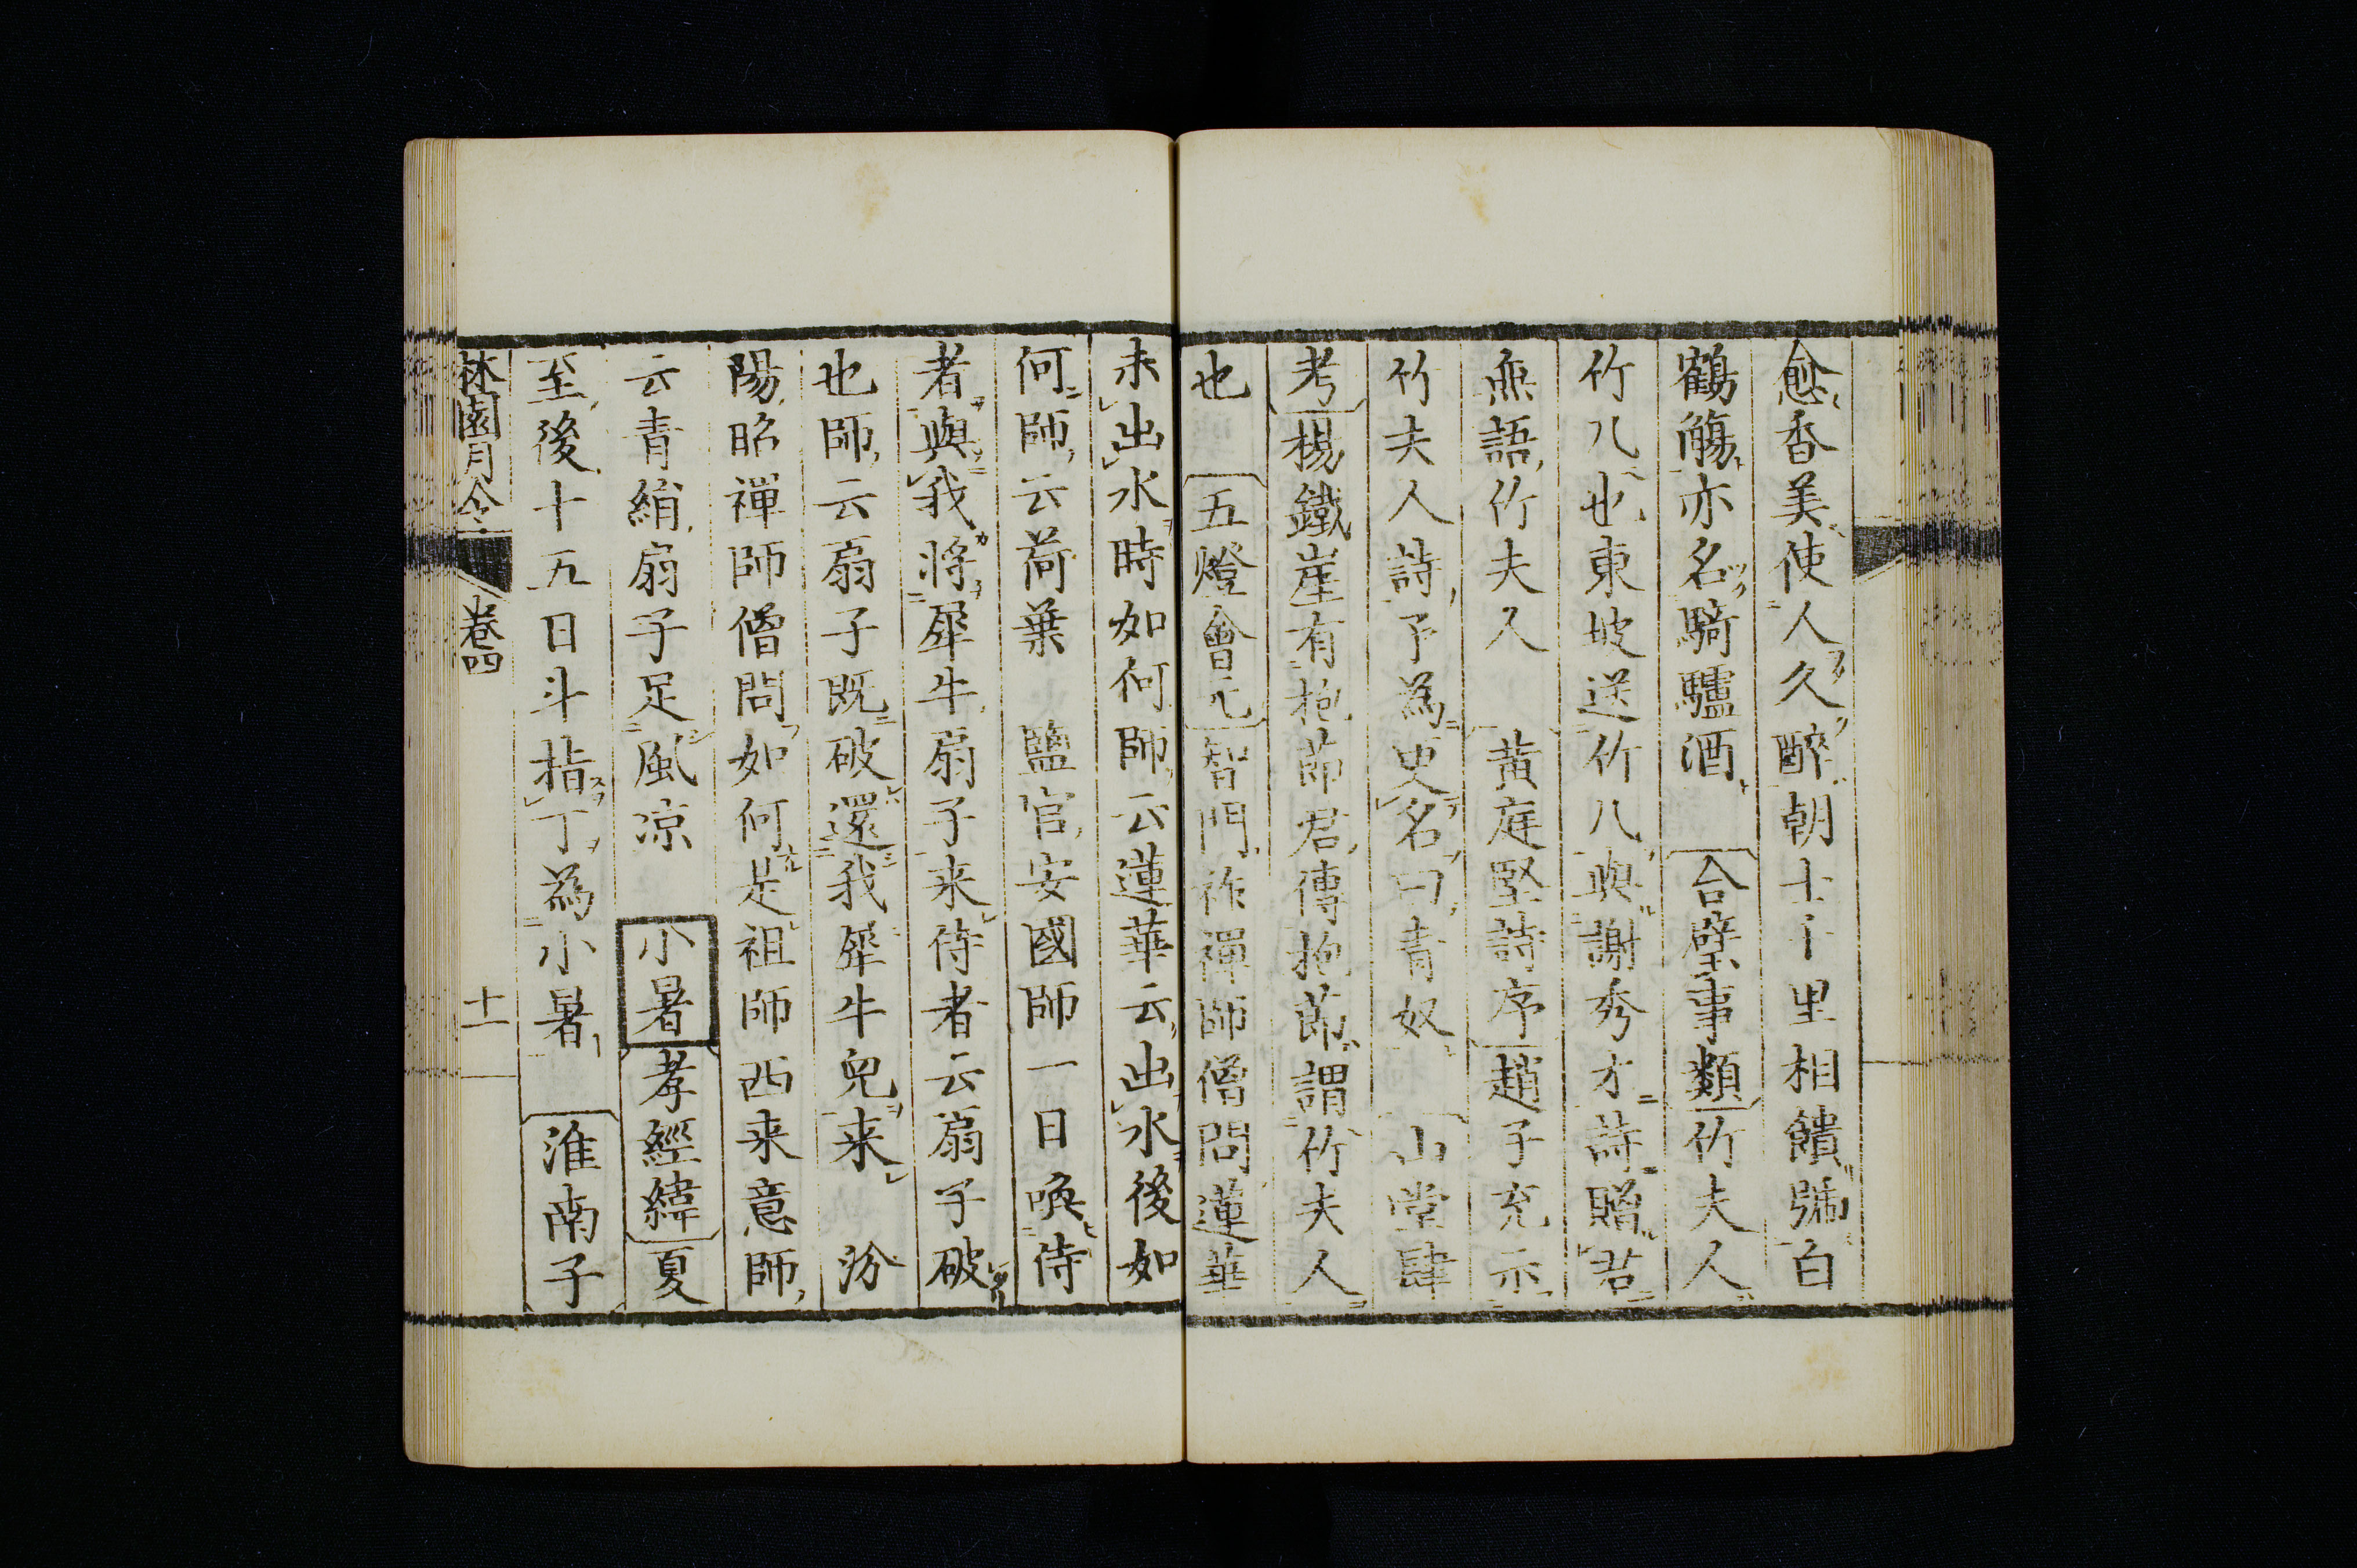 愈香美使人久醉朝士千里相饋號白
鶴觴亦名騎驢酒 合璧事類 竹夫人
竹几也東坡送竹几與謝秀才詩贈君
無語竹夫人 黃庭堅詩序 趙子充示
竹夫人詩予為更名曰青奴 山堂肆
考 楊鐵崖有抱節君傳抱節謂竹夫人
也 五燈會元 智門祚禪師僧問蓮華
未出水時如何師云蓮華云出水後如
何師云荷葉 鹽官安國師一日喚侍
者與我將犀牛扇子来侍者云扇子破
也師云扇子既破還我犀牛兒来 汾
陽昭禪師僧問如何是祖師西来意師
云青絹扇子足風凉 小暑 孝經緯 夏
至後十五日斗指丁為小暑 淮南子
林園月令 卷四 十一